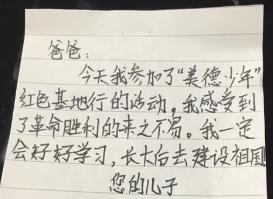 爸爸：
今天我参加了“美德少年”
红色基地行的活动。我感受到
了革命胜利的来之不易。我一定
会好好学习，长大后去建设祖国
您的儿子